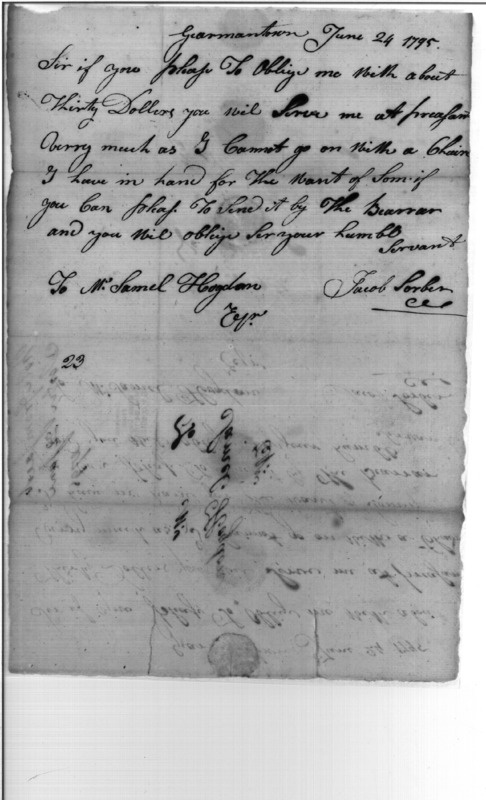 Gearmantown June 24 1795.
Sir if you pleas To Oblige me With about
Thirty Dollers you wil Serve me at preasan
Verry much as I Cannot go on With a Chain
I have in hand for The Want of Som if
you Can pleas. To Send it by The Bearrar
and you Wil oblige Ser your humbl
Servant
To Mr. Samel Hogdon
Jacob Sorber
Esqr.
23